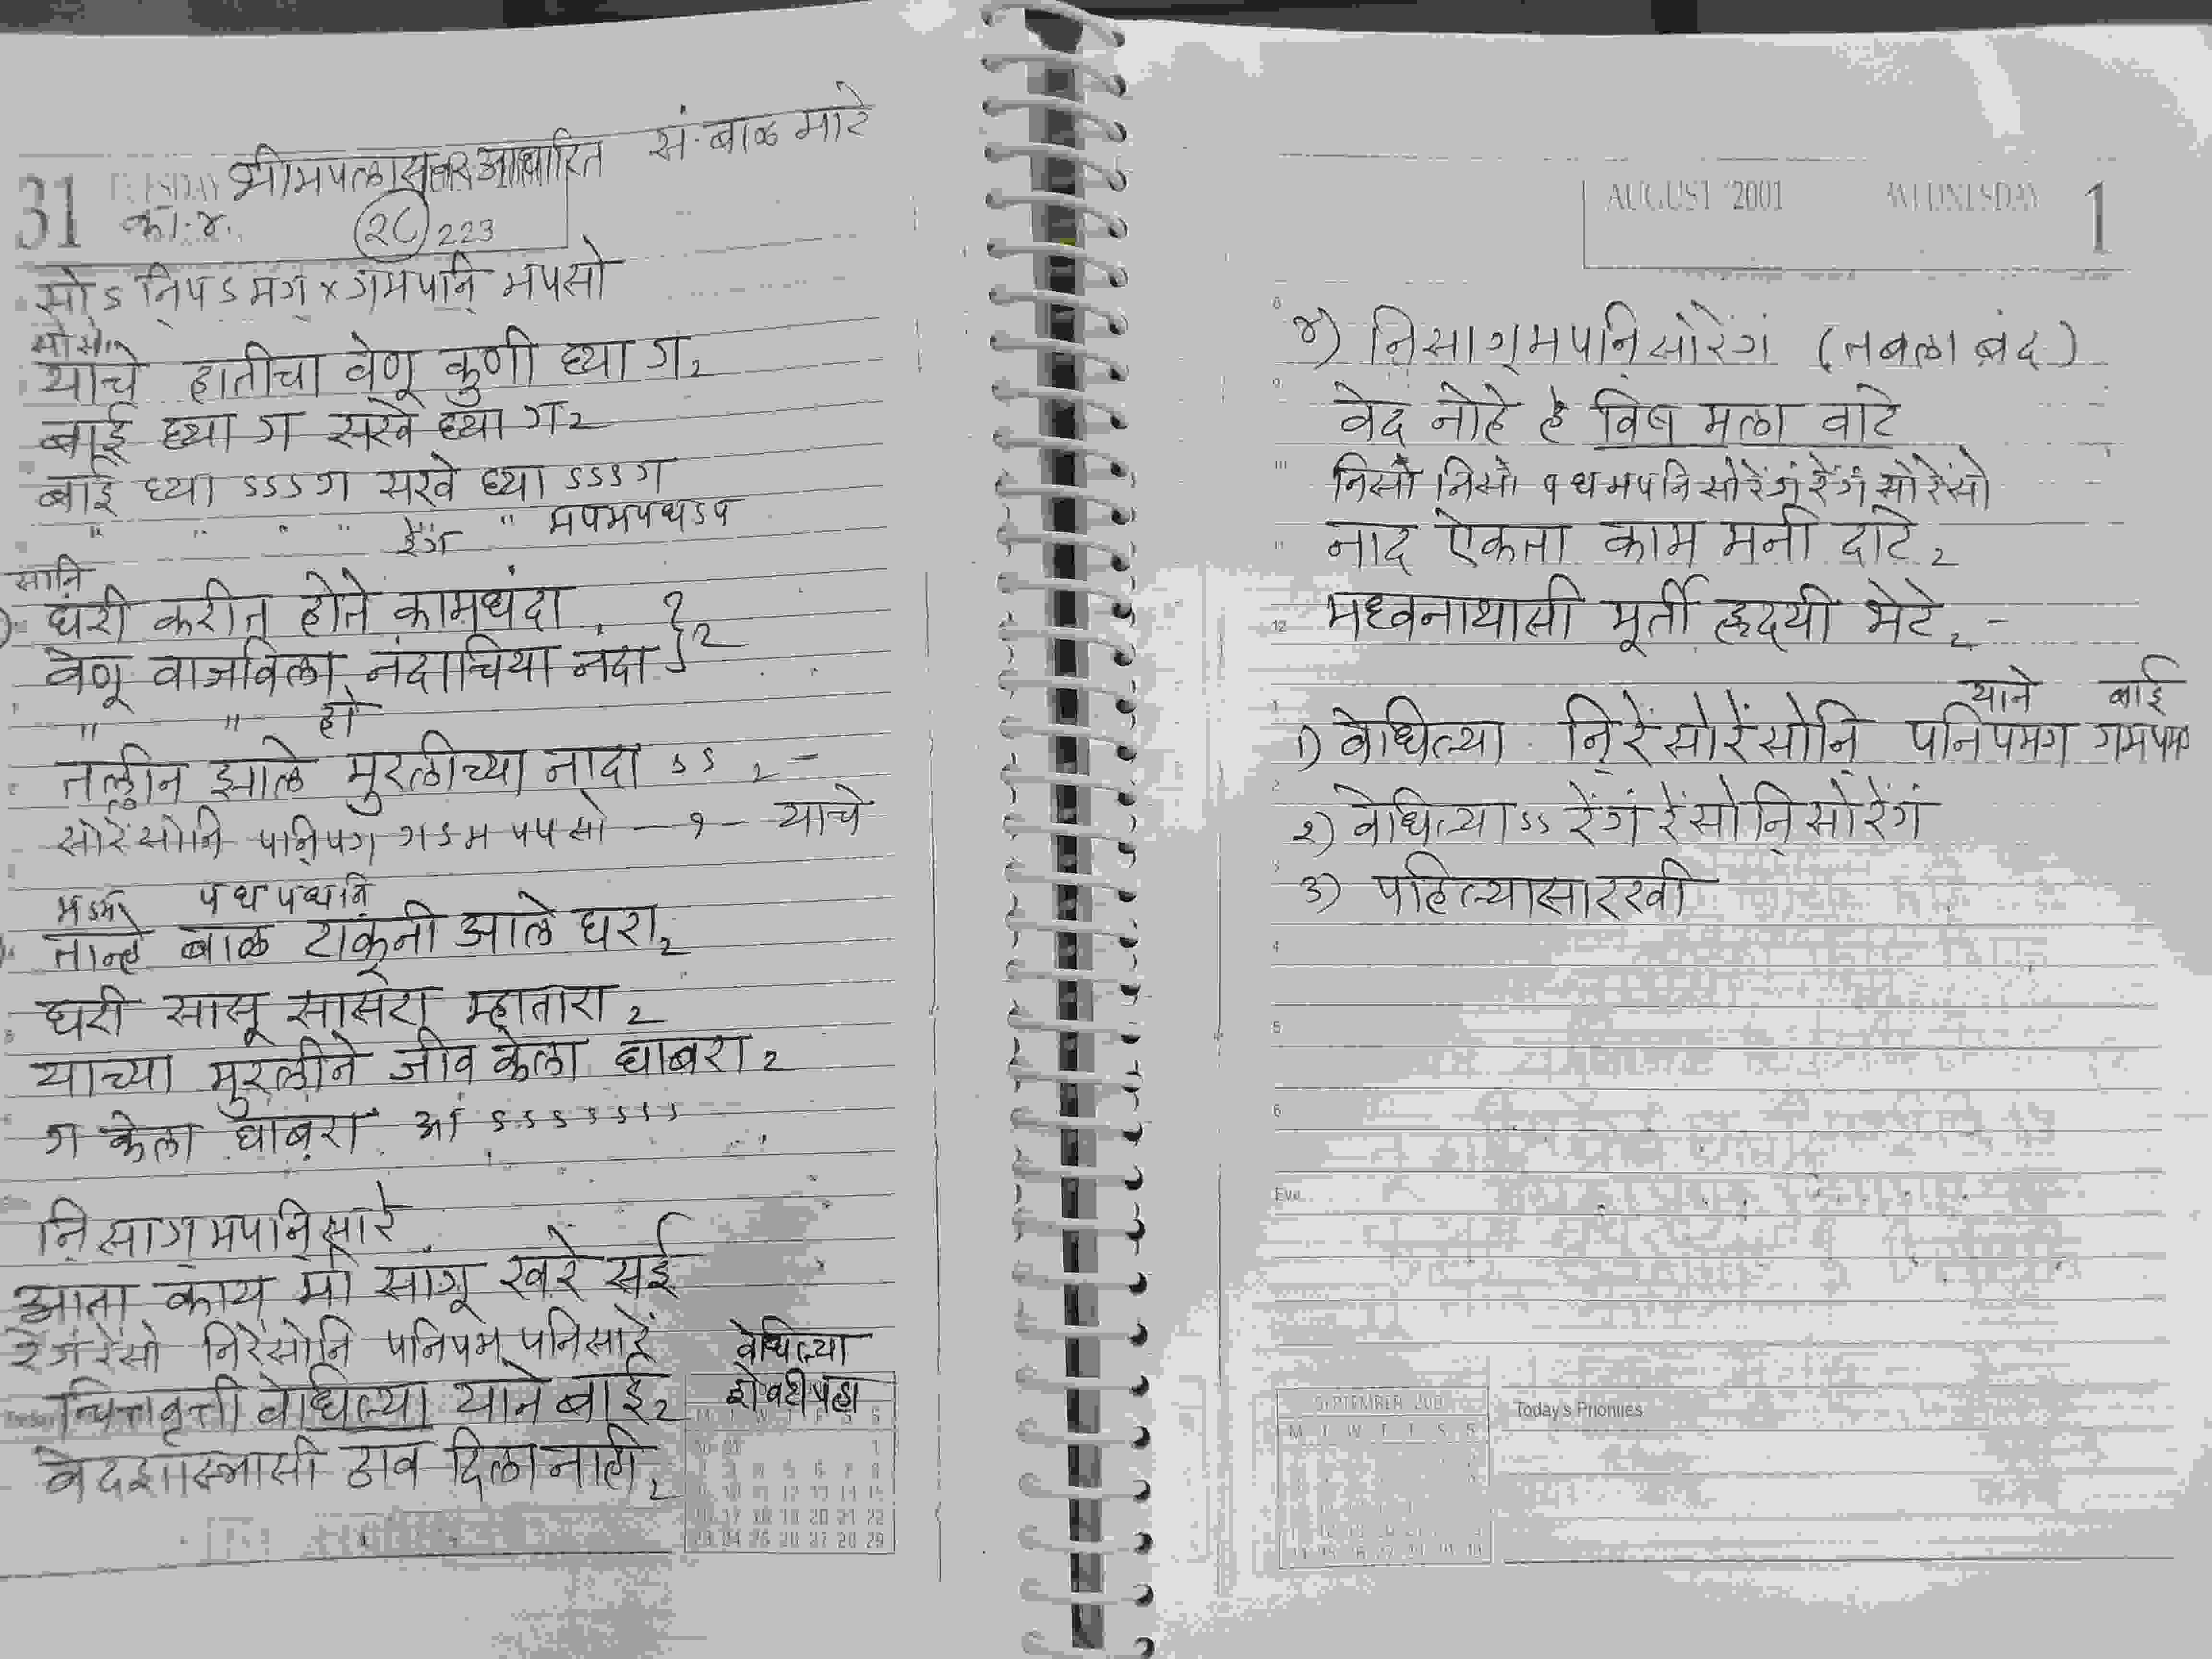 भीमपलासवर आधारित सं. बाळ माटे
31 TUESDAY
का. ४. २८ 223
सां ऽ नि्प ऽ मग् × ग्मपनि् मपसां
सां सां
याचे हातीचा वेणू कुणी घ्या ग २
बाई घ्या ग सखे घ्या ग २
बाई घ्या ऽऽऽ ग सखे घ्या ऽऽऽ ग
" " " " रेंगं " मपमपधऽप
सानि
घरी करीत होते कामधंदा
वेणू वाजविला नंदाचिया नंदा } २
" " हो
तल्लीन झाले मुरलीच्या नादा ऽऽ २ –
सांरेंसांनि पनि्पग् गऽम पपसां – १ – याचे
मऽम पध पधनि
तान्हे बाळ टाकूनी आले घरा २
घरी सासू सासरा म्हातारा २
याच्या मुरलीने जीव केला घाबरा २
ग केला घाबरा आ ऽऽऽऽऽऽऽ
नि्साग्मपनि्सारे
आता काय मी सांगू खरे सई
रेंगंरेंसां निरेंसांनि पनिपम पनिसारें वेधिल्या
चित्तवृत्ती वेधिल्या याने बाई २ शेवटी पहा
वेदशास्त्रासी ठाव दिला नाही २
AUGUST 2001 WEDNESDAY 1
४) नि्साग्मपनि्सांरेंगं (तबला बंद)
वेद नोहे हे विष मला वाटे
निसां निसां पधमपनिसांरेंगंरेंगंसांरेंसां
नाद ऐकता काम मनी दाटे २
मध्वनाथासी मूर्ती हृदयी भेटे २ –
याने बाई
१) वेधिल्या नि्रेंसांरेंसांनि पनिपमग गमपम
२) वेधिल्या ऽऽ रेंगंरेंसांनि्सांरेंगं
३) पहिल्यासारखी
SEPTEMBER 2001
M T W T F S S
Today's Priorities